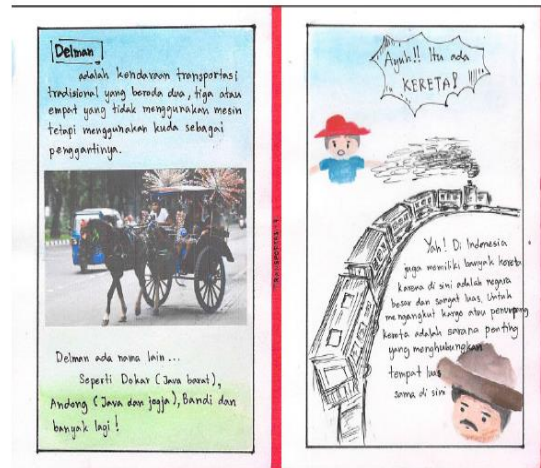 Delman
adalah kendaraan transportasi
tradisional yang beroda dua, tiga atau
empat yang tidak menggunakan mesin
tetapi menggunakan kuda sebagai
penggantinya.
Delman ada nama lain ...
Seperti Dokar (Java barat),
Andong (Java dan jogja), Bandi dan
banyak lagi!
Ayah!! Itu ada
KERETA!
Yah! Di Indonesia
juga memiliki banyak kereta
karena di sini adalah negara
besar dan sangat luas. Untuk
mengangkut kargo atau penumpang
kereta adalah sarana penting
yang menghubungkan
tempat luas
sama di sini